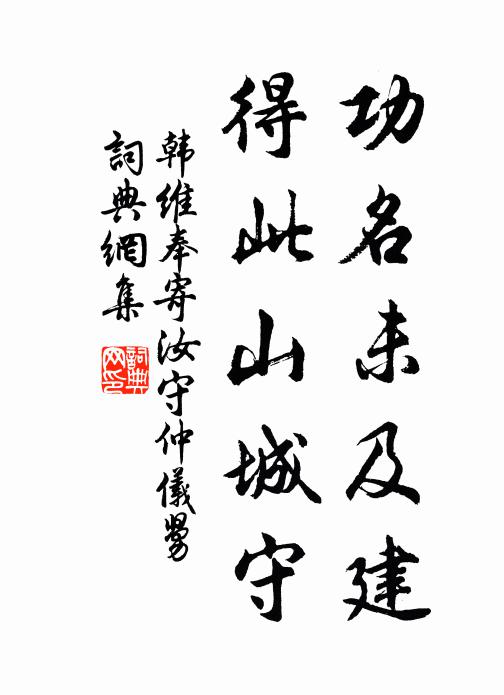 功名未及建
得此山城守
韩維奉寄汝守仲儀舅
詞典網集
詞典网印